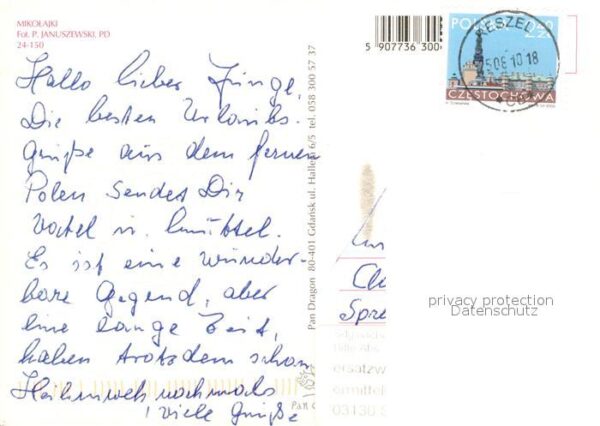 MIKOŁAJKI
Fot. P. JANUSZEWSKI, PD
24-150
Hallo lieber Junge,
Die besten Urlaubs-
grüße aus dem fernen
Polen sendet Dir
Vatel u. Muttel.
Es ist eine wunder-
bare Gegend, aber
eine lange Zeit,
haben trotzdem schon
Heimweh nochmals
viele Grüße
Pan Dragon 80-401 Gdańsk ul. Hallera 6/5 tel. 058 300 57 37
5 907736 300
POL
CZĘSTOCHOWA
RESZEL
privacy protection
Datenschutz
Spre
ersatzw
ermittel
03130 S